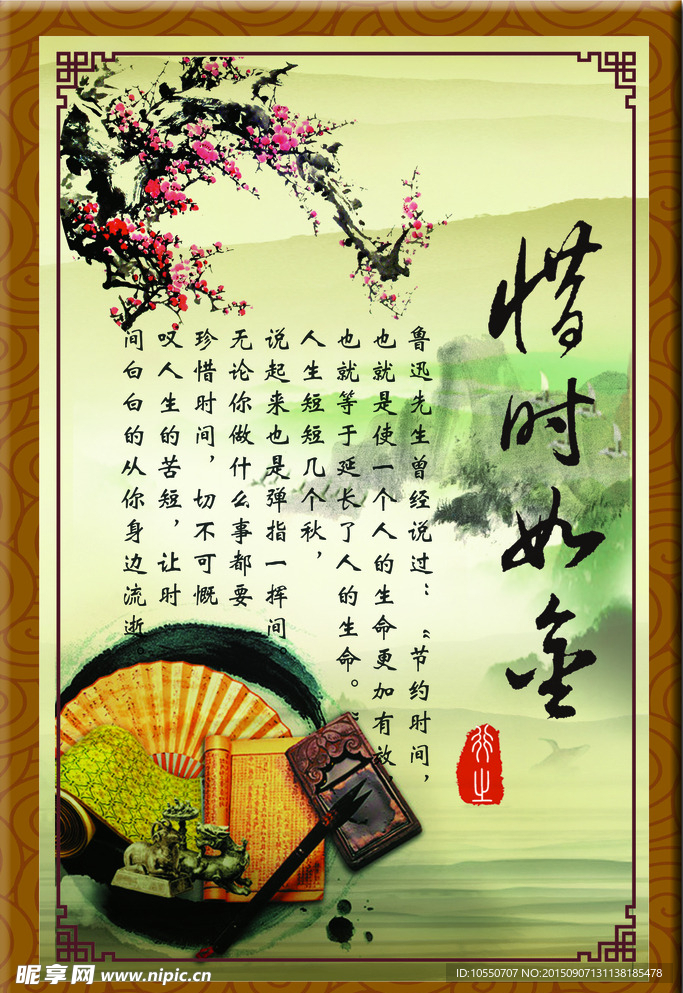 惜时如金
鲁迅先生曾经说过：“节约时间，
也就是使一个人的生命更加有效，
也就等于延长了人的生命。”
人生短短几个秋，
说起来也是弹指一挥间。
无论你做什么事都要
珍惜时间，切不可慨
叹人生的苦短，让时
间白白的从你身边流逝。
昵享网 www.nipic.cn
ID:10550707 NO:20150907131138185478